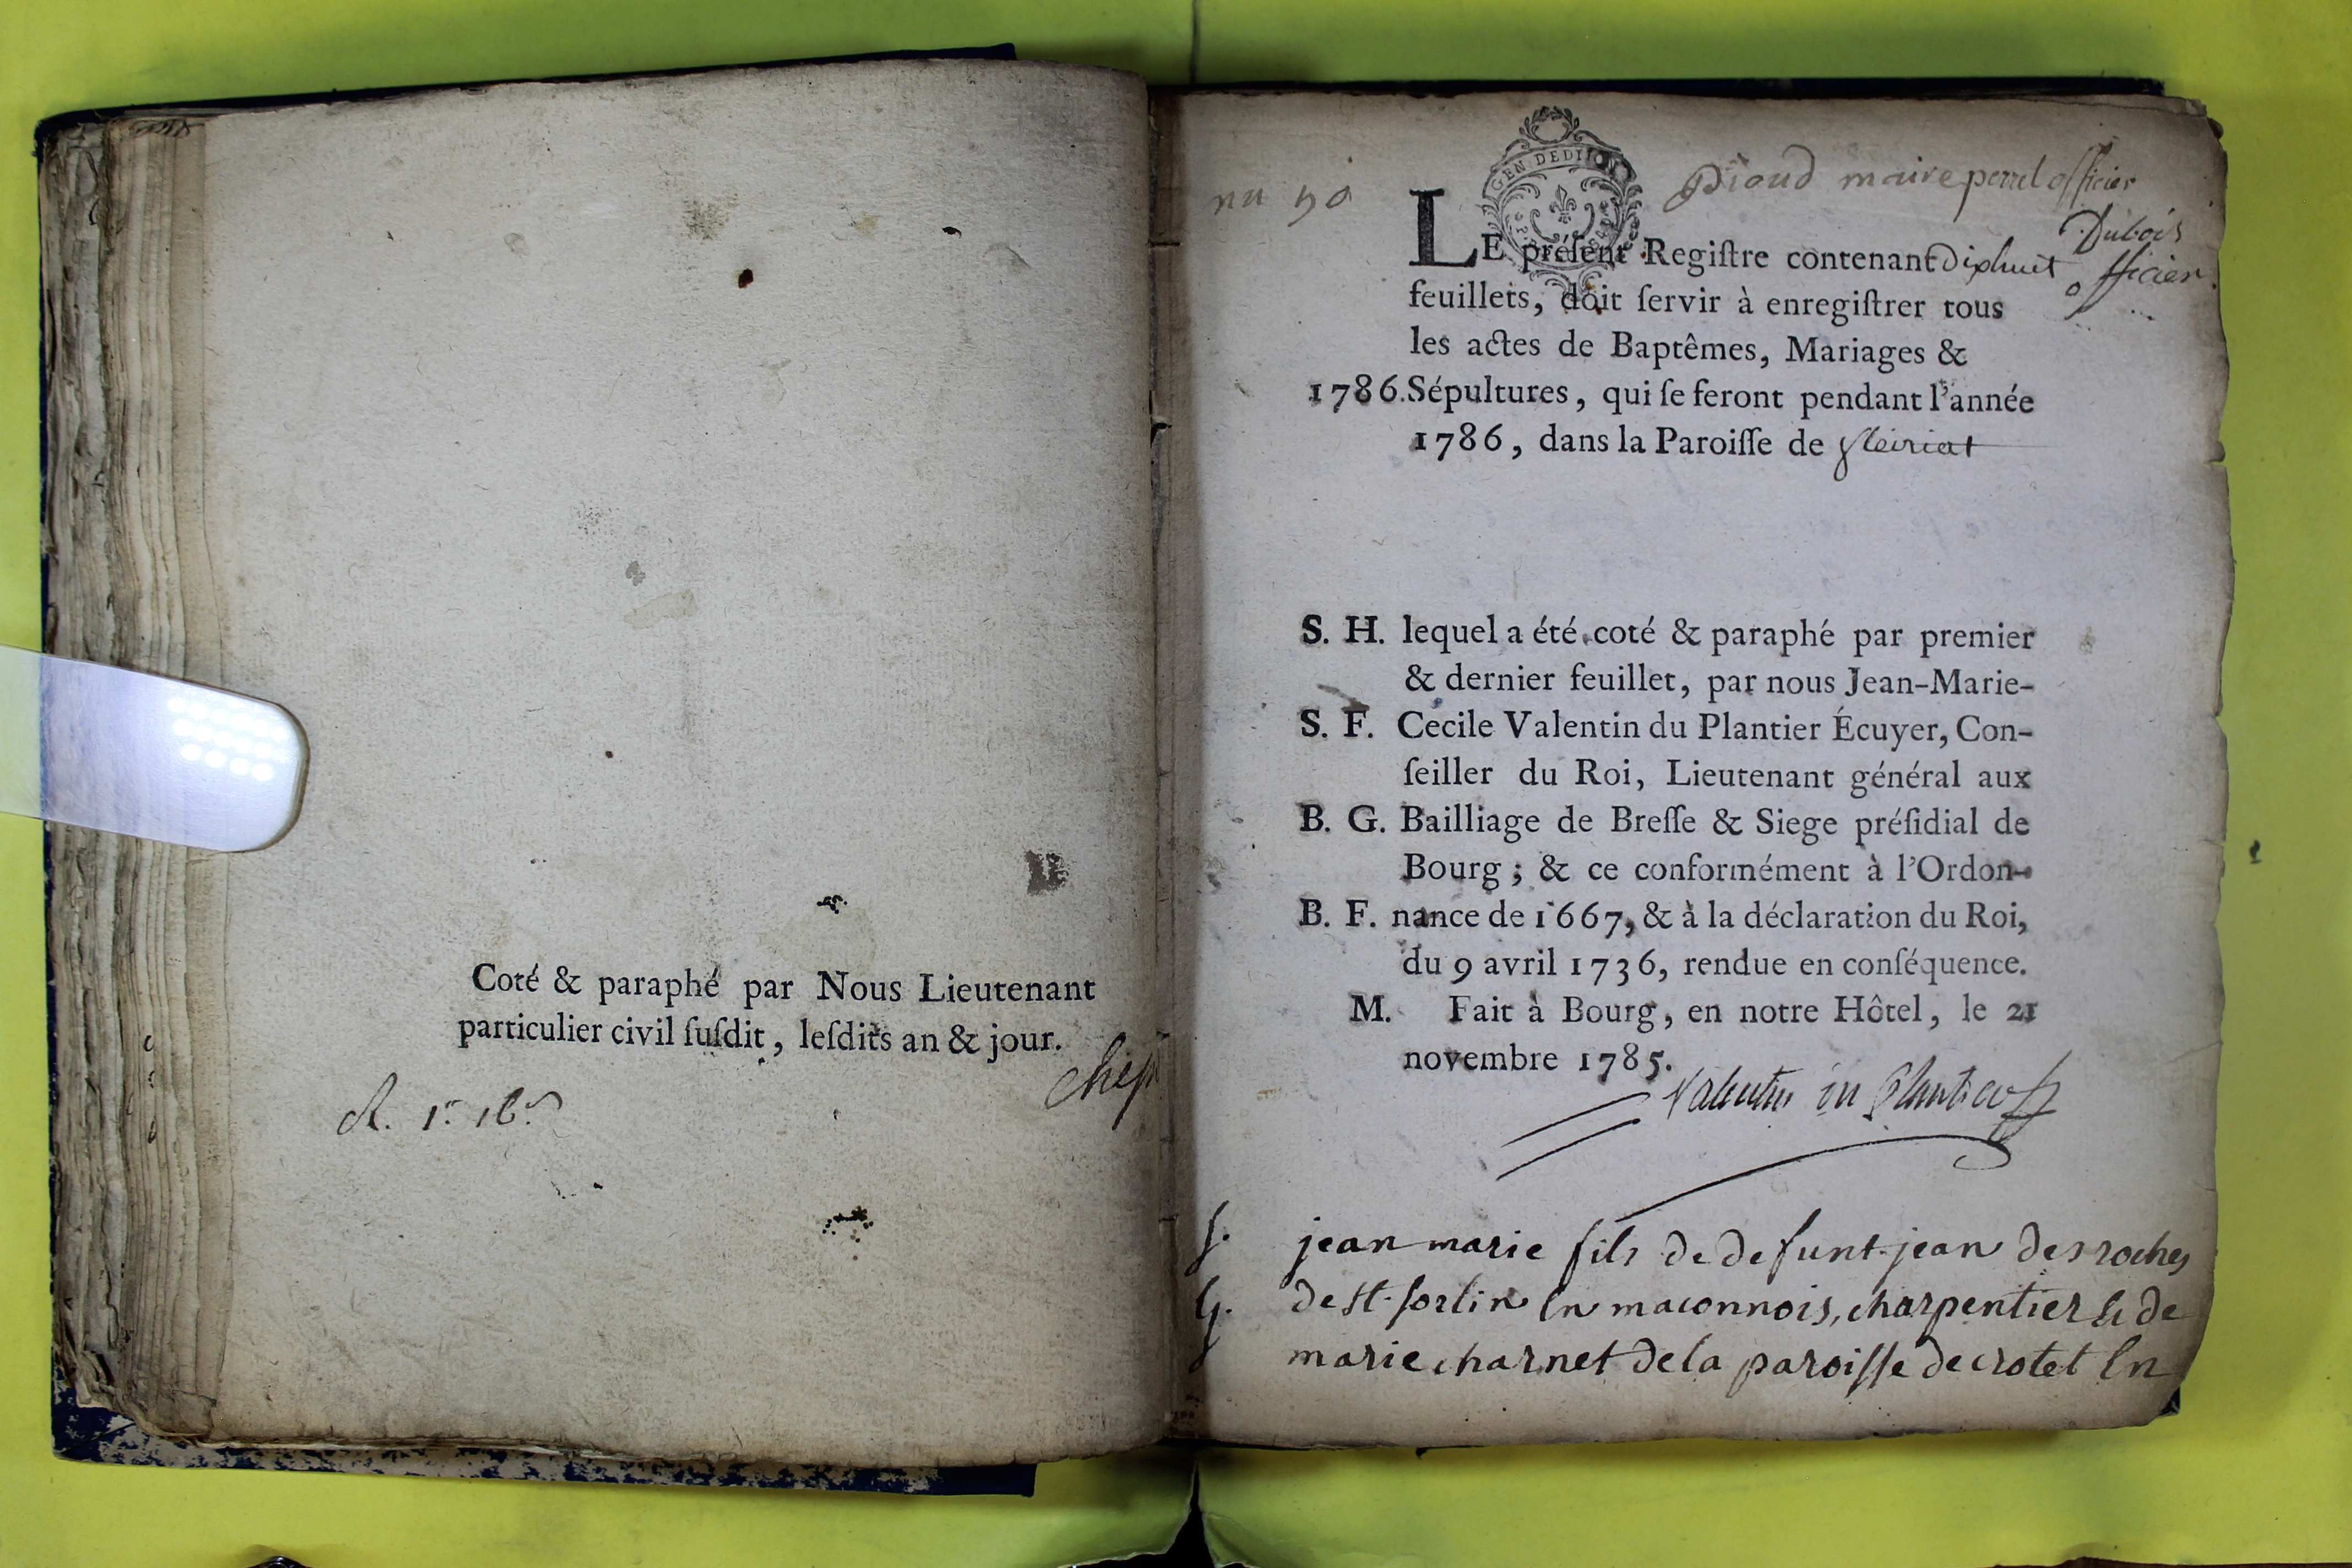 Coté & paraphé par Nous Lieutenant
particulier civil ſuſdit, leſdits an & jour.
GEN. DE DIJON
maire perrel officier
Dubois
officier
LE préſent Regiſtre contenant Dixhuit
feuillets, doit ſervir à enregiſtrer tous
les actes de Baptêmes, Mariages &
1786. Sépultures, qui ſe feront pendant l'année
1786, dans la Paroiſſe de fleiriat
S. H. lequel a été coté & paraphé par premier
& dernier feuillet, par nous Jean-Marie-
S. F. Cecile Valentin du Plantier Écuyer, Con-
ſeiller du Roi, Lieutenant général aux
B. G. Bailliage de Breſſe & Siege préſidial de
Bourg ; & ce conformément à l'Ordon-
B. F. nance de 1667, & à la déclaration du Roi,
du 9 avril 1736, rendue en conſéquence.
M. Fait à Bourg, en notre Hôtel, le 21
novembre 1785.
Valentin du Plantier
S. jean marie fils de defunt jean desroches
G. de st. sorlin en maconnois, charpentier & de
marie charnet de la paroisse de crotet en